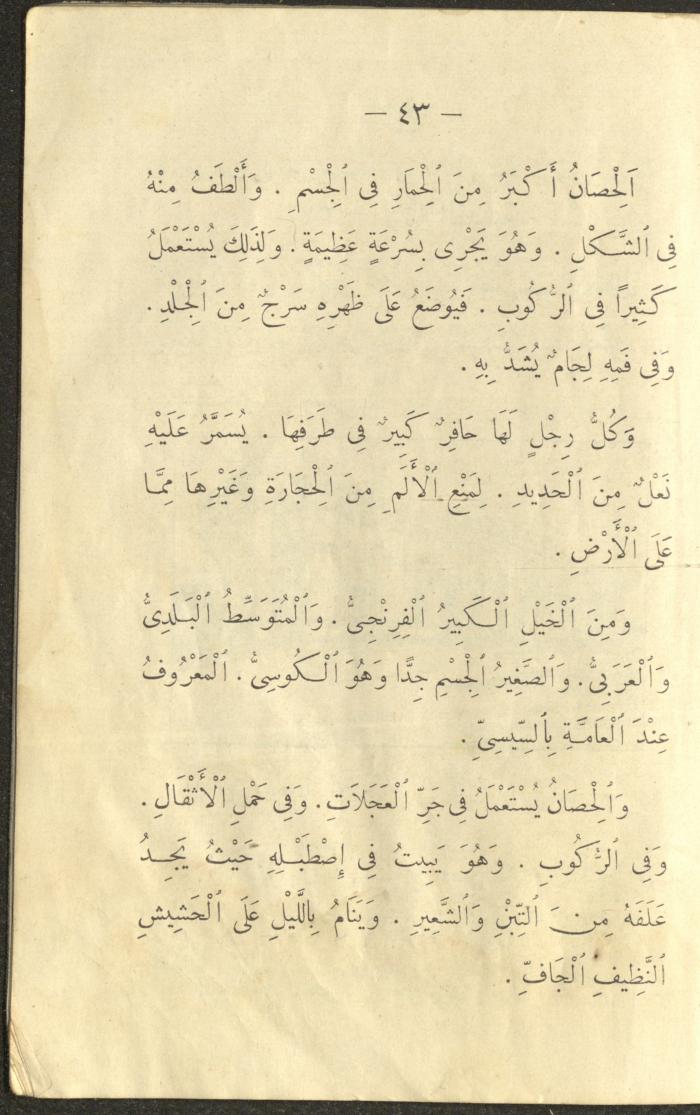 — ٤٣ —
اَلْحِصَانُ أَكْبَرُ مِنَ ٱلْحِمَارِ فِى ٱلْجِسْمِ . وَأَلْطَفُ مِنْهُ
فِى ٱلشَّكْلِ . وَهُوَ يَجْرِى بِسُرْعَةٍ عَظِيمَةٍ . وَلِذَلِكَ يُسْتَعْمَلُ
كَثِيراً فِى ٱلرُّكُوبِ . فَيُوضَعُ عَلَى ظَهْرِهِ سَرْجٌ مِنَ ٱلْجِلْدِ .
وَفِى فَمِهِ لِجَامٌ يُشَدُّ بِهِ .
وَكُلُّ رِجْلٍ لَهَا حَافِرٌ كَبِيرٌ فِى طَرَفِهَا . يُسَمَّرُ عَلَيْهِ
نَعْلٌ مِنَ ٱلْحَدِيدِ . لِمَنْعِ ٱلْأَلَمِ مِنَ ٱلْحِجَارَةِ وَغَيْرِهَا مِمَّا
عَلَى ٱلْأَرْضِ .
وَمِنَ ٱلْخَيْلِ ٱلْكَبِيرُ ٱلْفِرِنْجِىُّ . وَٱلْمُتَوَسِّطُ ٱلْبَلَدِىُّ
وَٱلْعَرَبِىُّ . وَٱلصَّغِيرُ ٱلْجِسْمِ جِدًّا وَهُوَ ٱلْكُوسِىُّ . ٱلْمَعْرُوفُ
عِنْدَ ٱلْعَامَّةِ بِٱلسِّيسِىِّ .
وَٱلْحِصَانُ يُسْتَعْمَلُ فِى جَرِّ ٱلْعَجَلَاتِ . وَفِى حَمْلِ ٱلْأَثْقَالِ .
وَفِى ٱلرُّكُوبِ . وَهُوَ يَبِيتُ فِى إِصْطَبْلِهِ حَيْثُ يَجِدُ
عَلَفَهُ مِنَ ٱلتِّبْنِ وَٱلشَّعِيرِ . وَيَنَامُ بِاللَّيْلِ عَلَى ٱلْحَشِيشِ
ٱلنَّظِيفِ ٱلْجَافِّ .